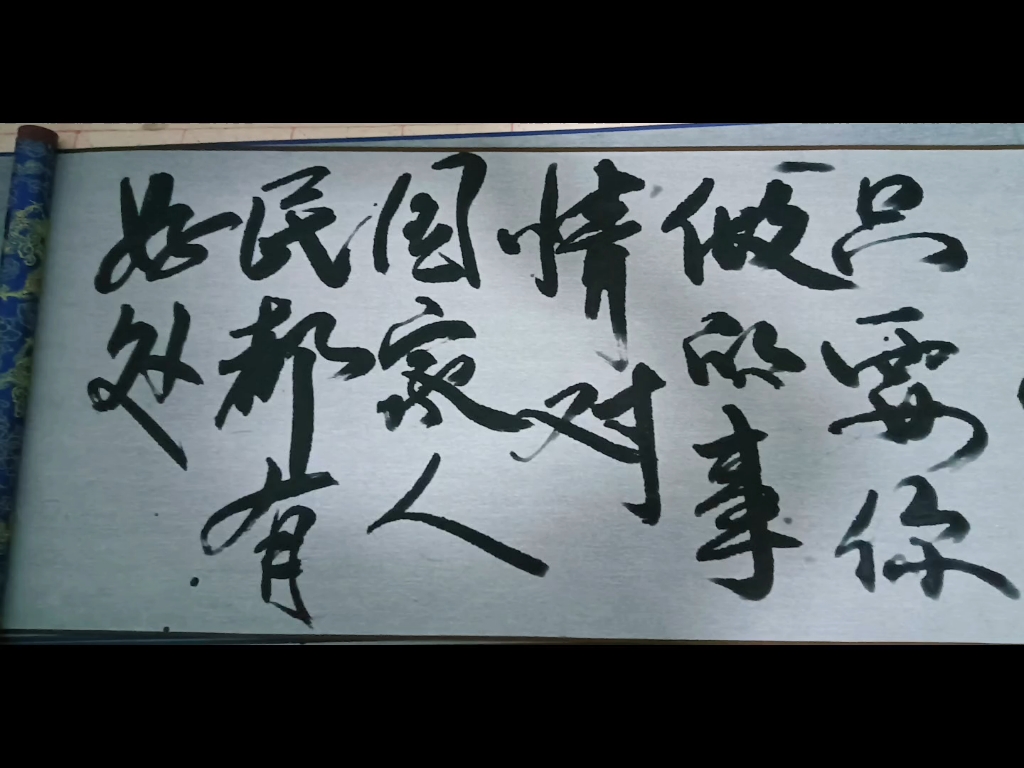 只要你
做的事
情对
国家人
民都有
好处